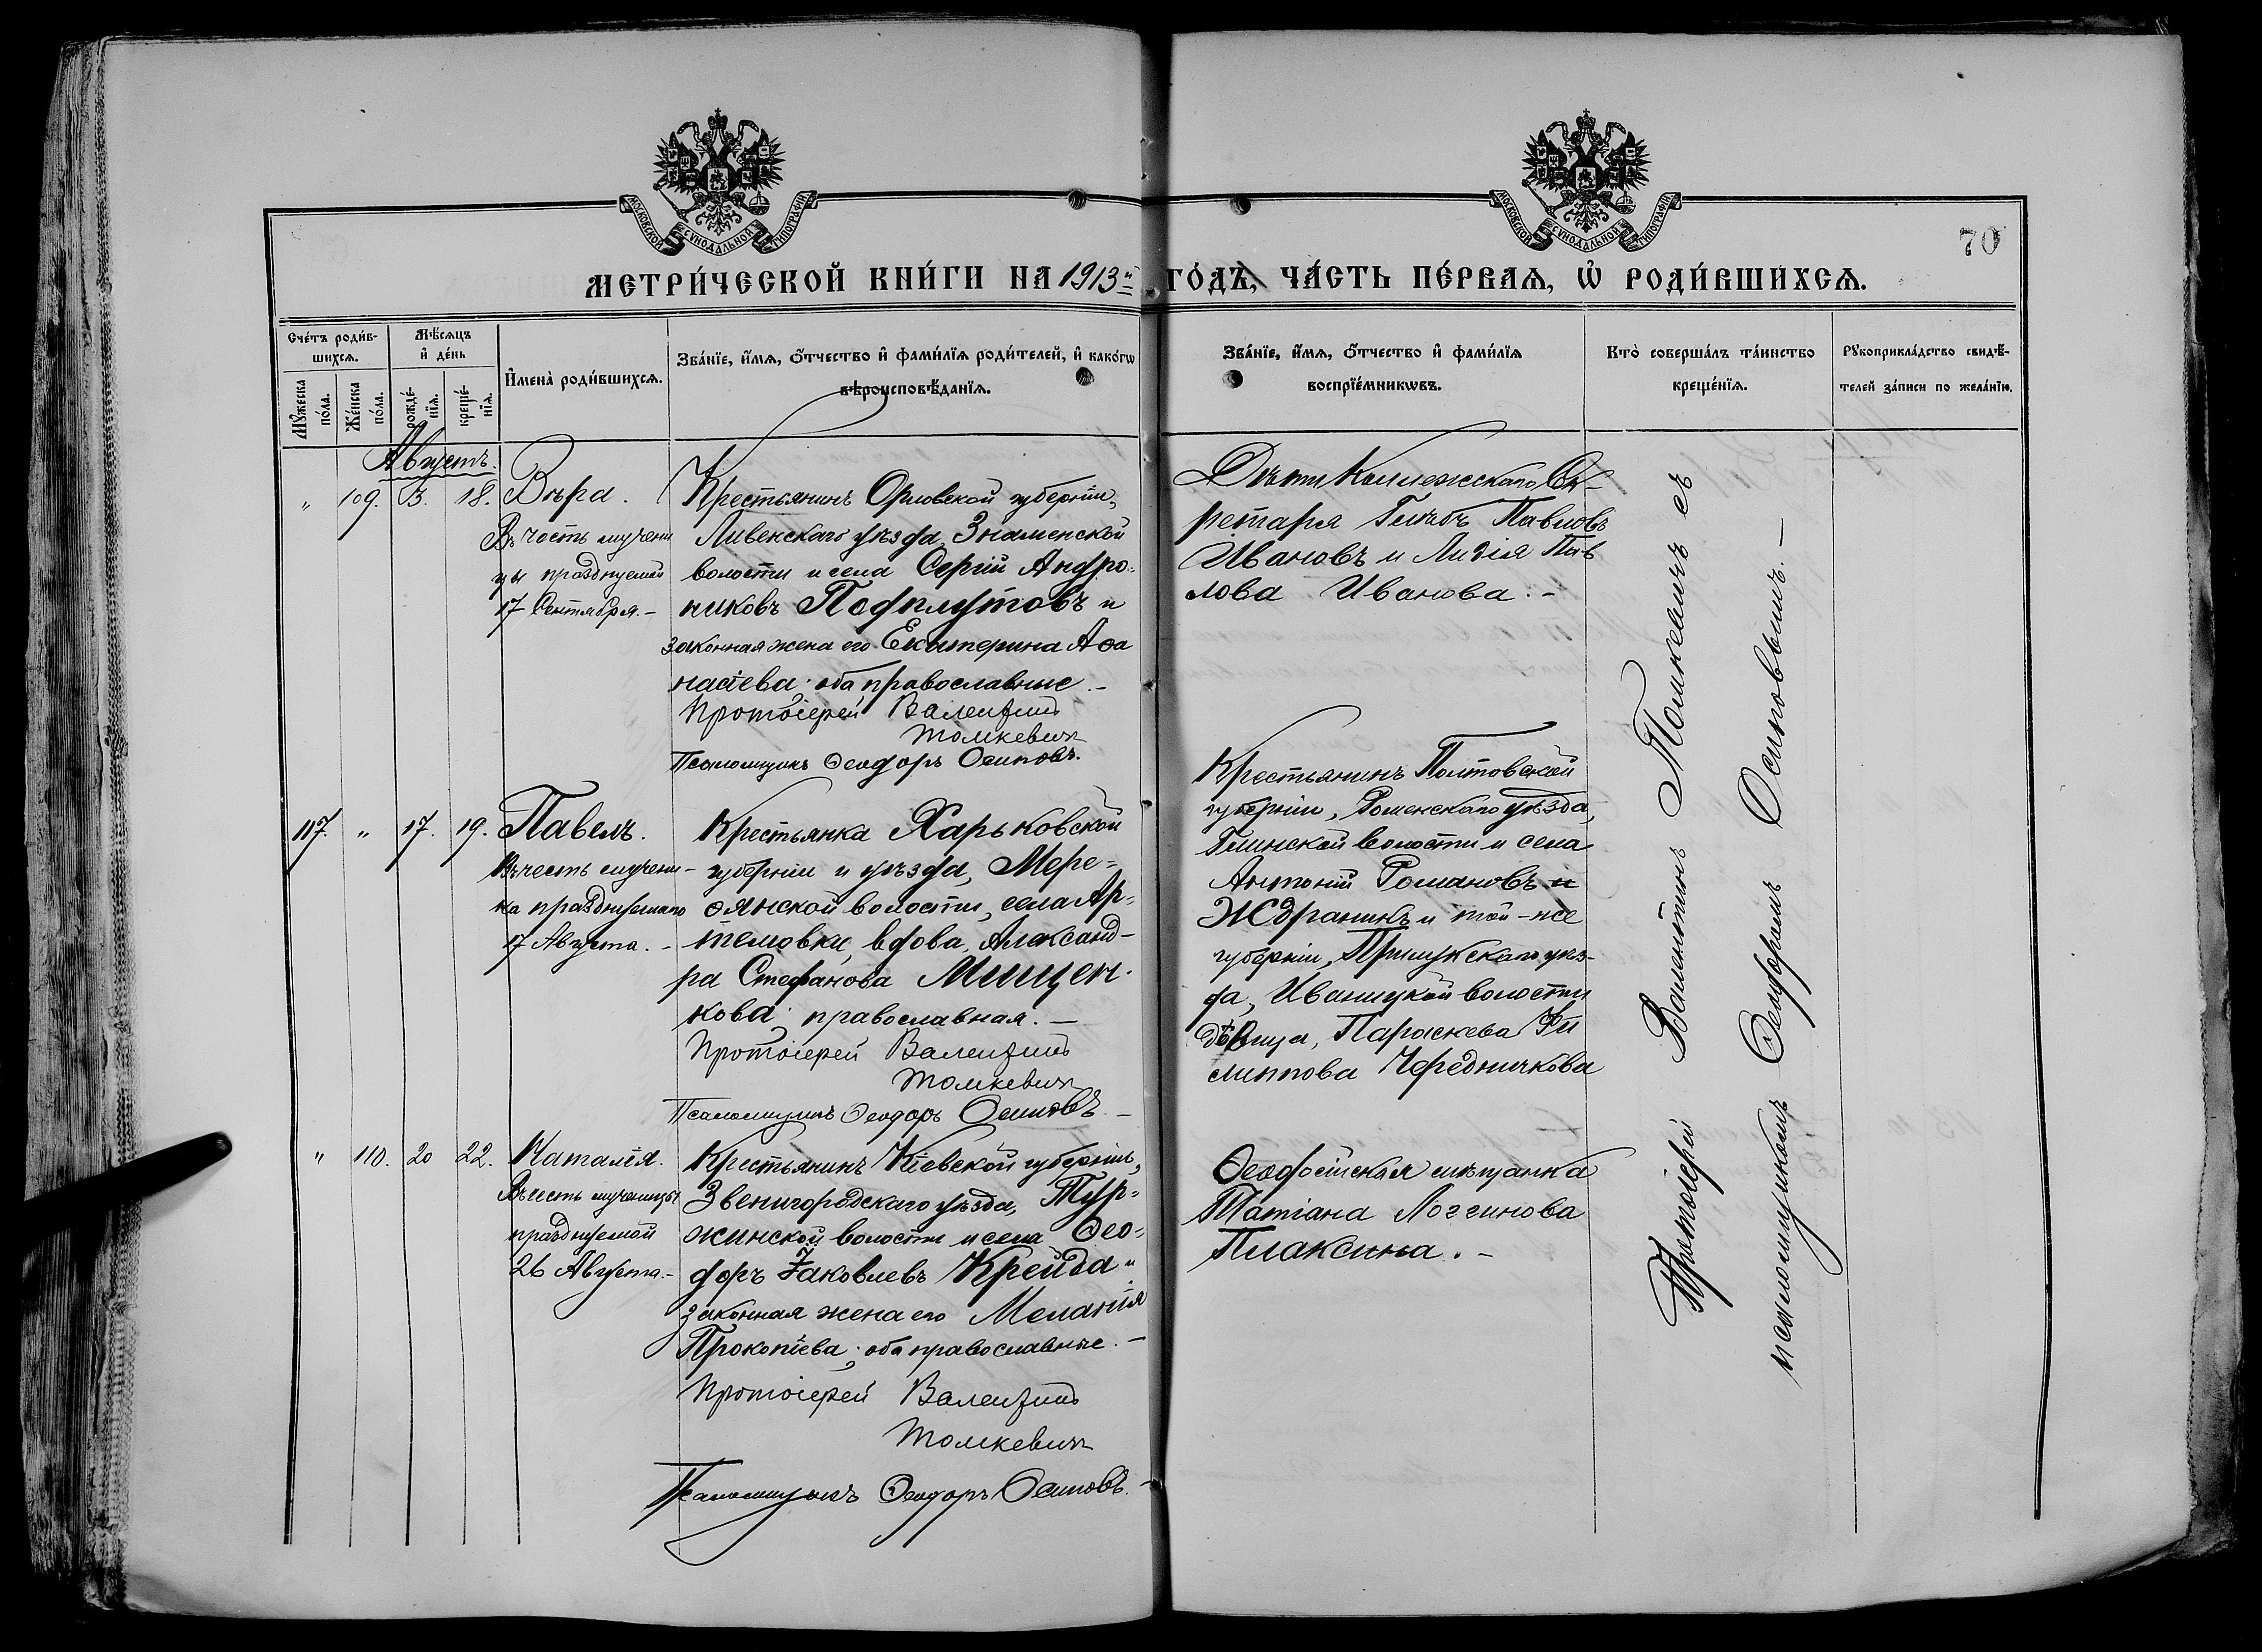 МОСКОВСКОЙ СѴНОДАЛЬНОЙ ТИПОГРАФІИ
МОСКОВСКОЙ СѴНОДАЛЬНОЙ ТИПОГРАФІИ
70
МЕТРИ́ЧЕСКОЙ КНИ́ГИ НА 1913й ГО́ДЪ, ЧА́СТЬ ПЕ́РВАѦ, Ѡ РОДИ́ВШИХСѦ.
Сче́тъ роди́в-
шихсѧ.
Мѣ́сѧцъ
и҆ де́нь
Мꙋ́жеска
по́ла.
Же́нска
по́ла.
рожде́-
нїѧ.
креще́-
нїѧ.
И҆мена̀ роди́вшихсѧ.
Зва́нїе, и҆́мѧ, ѻ҆́тчество и҆ фами́лїѧ роди́телей, и҆ како́гѡ
вѣроисповѣ́данїѧ.
Зва́нїе, и҆́мѧ, ѻ҆́тчество и҆ фами́лїѧ
воспрїе́мникѡвъ.
Кто̀ соверша́лъ та́инство
креще́нїѧ.
Рꙋкоприкла́дство свидѣ́-
телей за́писи по жела́нїю.
Августъ.
" 109. 3. 18. Вѣра.
Въ честь мучени
цы празднуемой
17 Сентября. -
Крестьянинъ Орловской губерніи,
Ливенскаго уѣзда, Знаменской
волости и села Сергій Андро-
никовъ Подплутовъ и
законная жена его Екатерина Аѳа
насіева; оба православные. -
Протоіерей Валентинъ
Томкевич
Псаломщикъ Ѳеодоръ Осиповъ.
Дѣти Коллежскаго Се-
ретаря Глѣбъ Павловъ
Ивановъ и Лидія Пав
лова Иванова. -
117. " 17. 19. Павелъ.
Въ честь мучени-
ка празднуемаго
17 Августа. -
Крестьянка Харьковской
губерніи и уѣзда, Мере-
ѳянской волости, села Ар-
темовки, вдова, Александ-
ра Стефанова Мищен-
кова; православная. -
Протоіерей Валентинъ
Томкевич
Псаломщикъ Ѳеодоръ Осиповъ. -
Крестьянинъ Полтовской
губерніи, Роменскаго уѣзда,
Глинской волости и села
Антоній Романовъ и
Ждранинъ и той-же
губерніи, Прилукскаго уѣз-
да, Иваницкой волости
дѣвица, Параскева Фи
липпова Чередничкова
" 110. 20 22. Наталія.
Въ честь мученицы
празднуемой
26 Августа. -
Крестьянинъ Кіевской губерніи,
Звенигородскаго уѣзда, Тур-
жинской волости и села Ѳео-
доръ Іаковлевъ Крейда и
законная жена его Меланія
Прокопіева; оба православные. -
Протоіерей Валентинъ
Томкевич
Псаломщикъ Ѳеодоръ Осиповъ. -
Ѳеодосійская мѣщанка
Татіана Логгинова
Плаксина. -
Протоіерей Валентинъ Томкевичъ съ
псаломщикомъ Ѳеодоромъ Осиповымъ. -